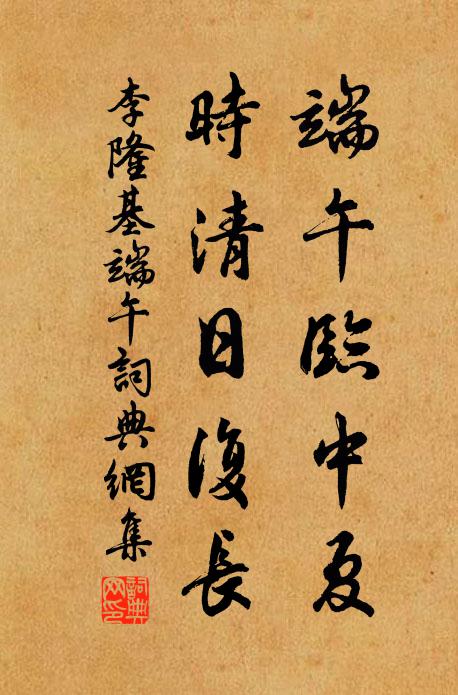 端午臨中夏
時清日復長
李隆基端午詞典網集
詞典網印